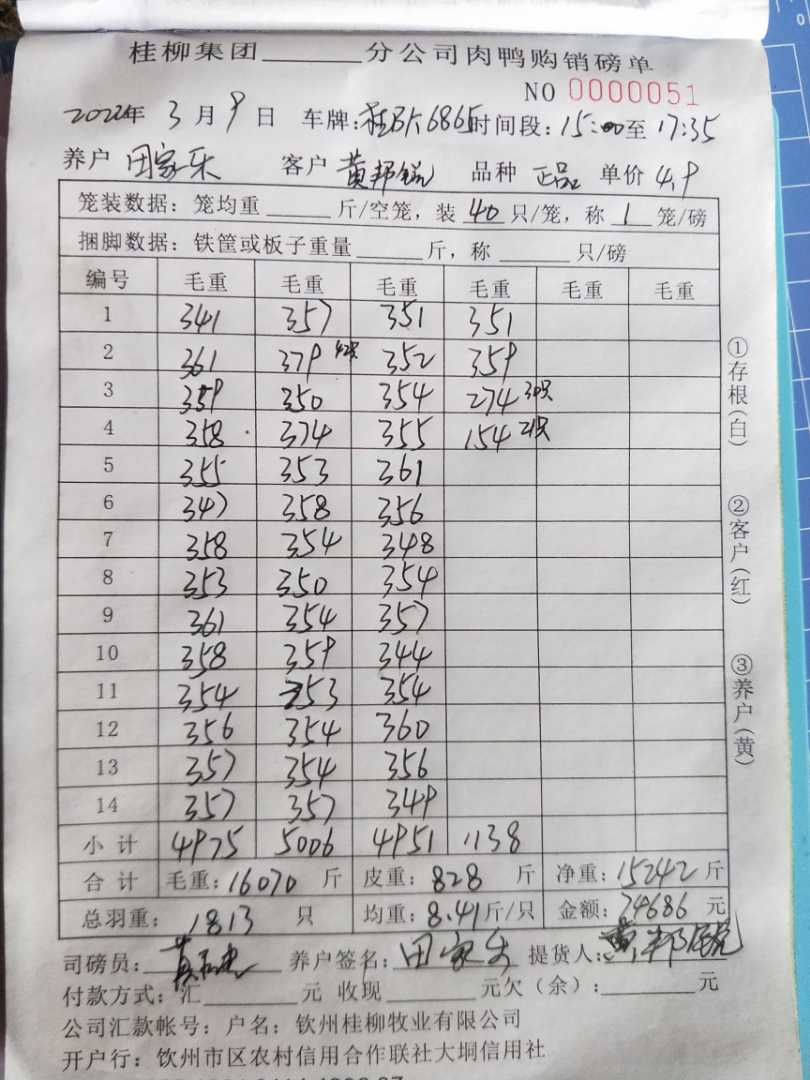 桂柳集团______分公司肉鸭购销磅单
NO 0000051
2022年 3月9日 车牌:桂BK6865 时间段: 15:00至17:35
养户 田家乐 客户 黄邦锐 品种 正品 单价 4.9
笼装数据: 笼均重 ______ 斤/空笼, 装 40 只/笼, 称 1 笼/磅
捆脚数据: 铁筐或板子重量 ______ 斤, 称 ______ 只/磅
编号 毛重 毛重 毛重 毛重 毛重 毛重
1 341 357 351 351
2 361 379 42只 352 359
3 359 350 354 274 30只
4 358 374 355 154 21只
5 355 353 361
6 347 358 356
7 358 354 348
8 353 350 354
9 361 354 357
10 358 359 344
11 354 353 354
12 356 354 360
13 357 354 356
14 357 357 349
小计 4975 5006 4951 1138
合计 毛重: 16070 斤 皮重: 828 斤 净重: 15242 斤
总羽重: 1813 只 均重: 8.41 斤/只 金额: 74686 元
司磅员: 养户签名: 田家乐 提货人: 黄邦锐
付款方式: 汇______元 收现______元欠(余):______元
公司汇款帐号: 户名: 钦州桂柳牧业有限公司
开户行: 钦州市区农村信用合作联社大垌信用社
①存根(白)
②客户(红)
③养户(黄)